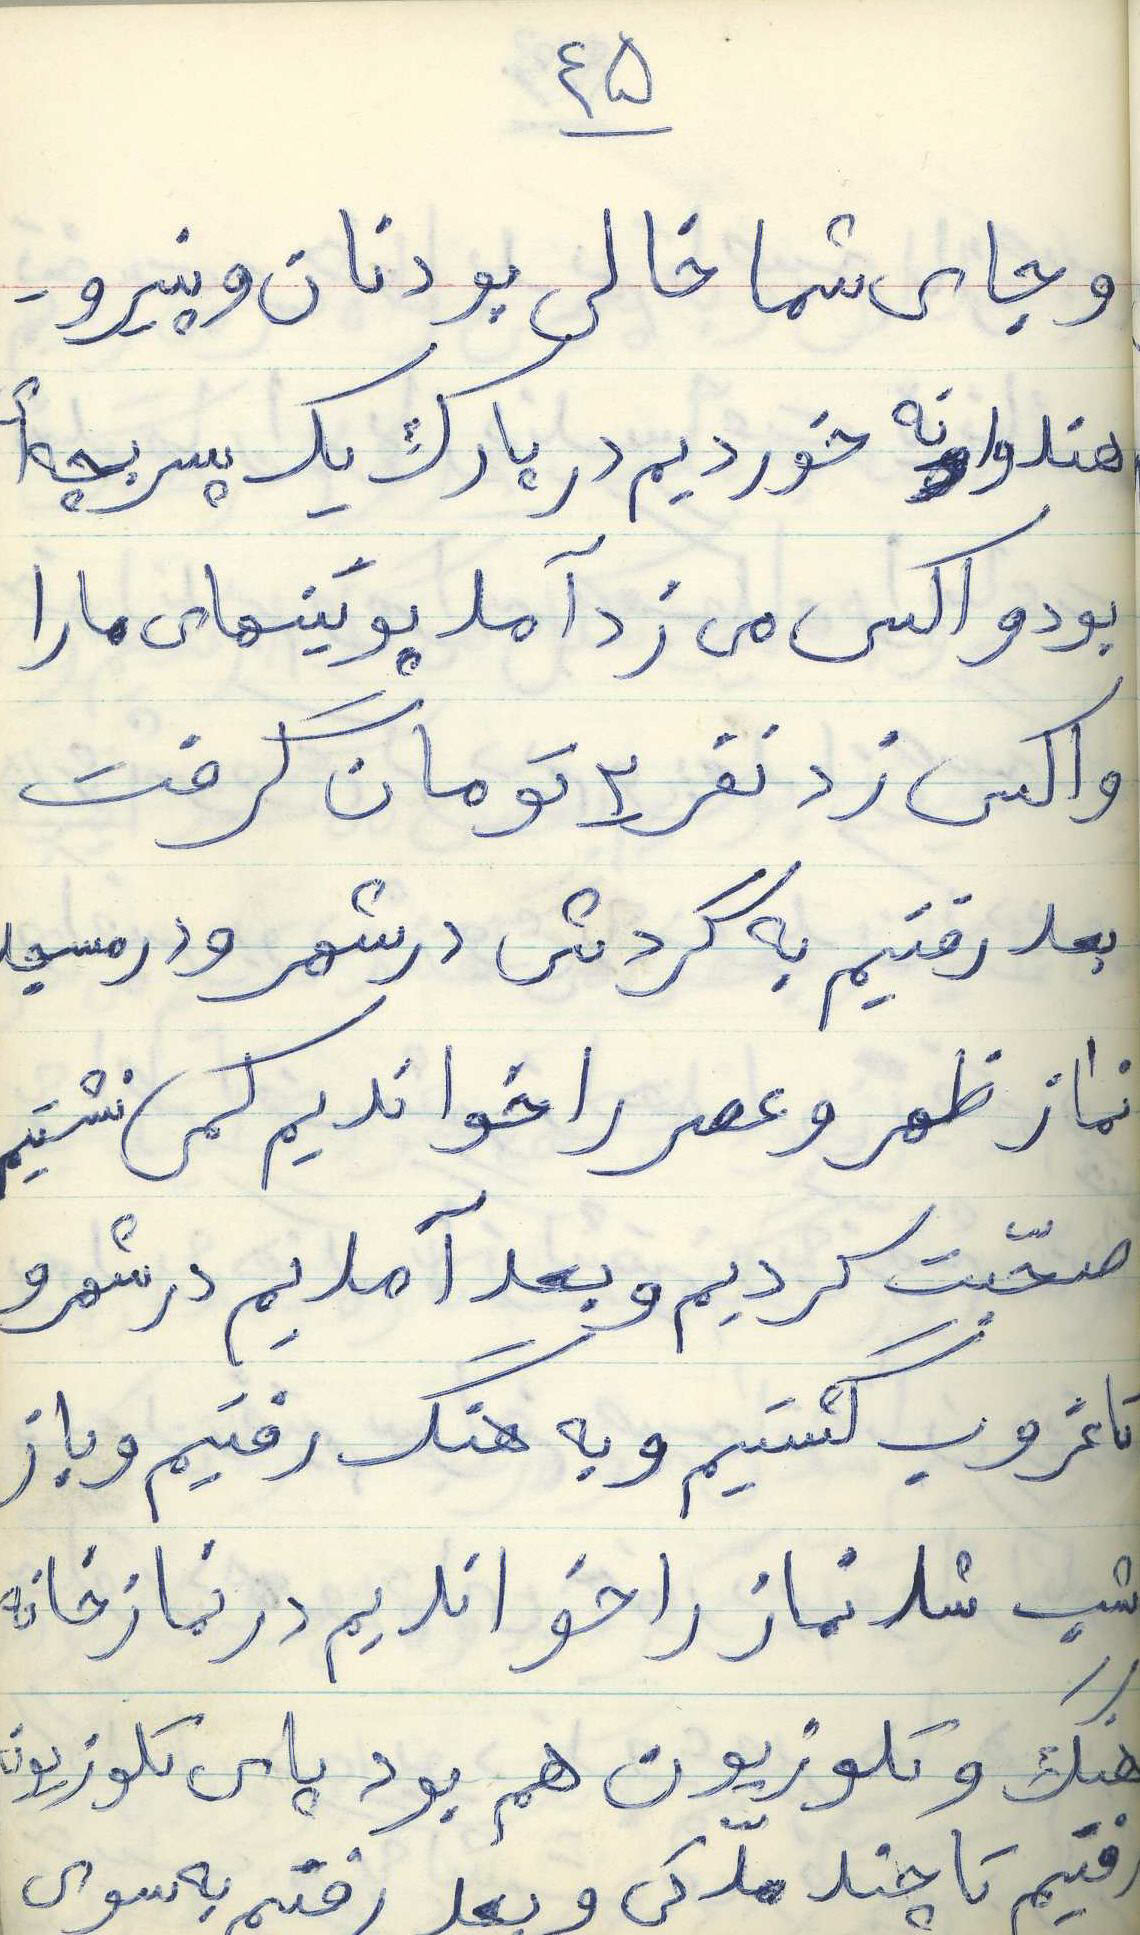 ۴۵
و جای شما خالی بود نان و پنیر و -
هندوانه خوردیم در پارک یک پسر بچه‌أ
بود واکس می زد آمد پوتینهای ما را
واکس زد نفر ۲ تومان گرفت
بعد رفتیم به گردش در شهر و در مسجد
نماز ظهر و عصر را خواندیم کمی نشستیم
صحّبت کردیم و بعد آمدیم در شهر و
تا غروب گشتیم و به هنگ رفتیم و باز
شب شد نماز را خواندیم در نماز خانه
هنگ و تلوزیون هم بود پای تلوزیون
رفتیم تا چند ملّدکی و بعد رفتیم به سوی